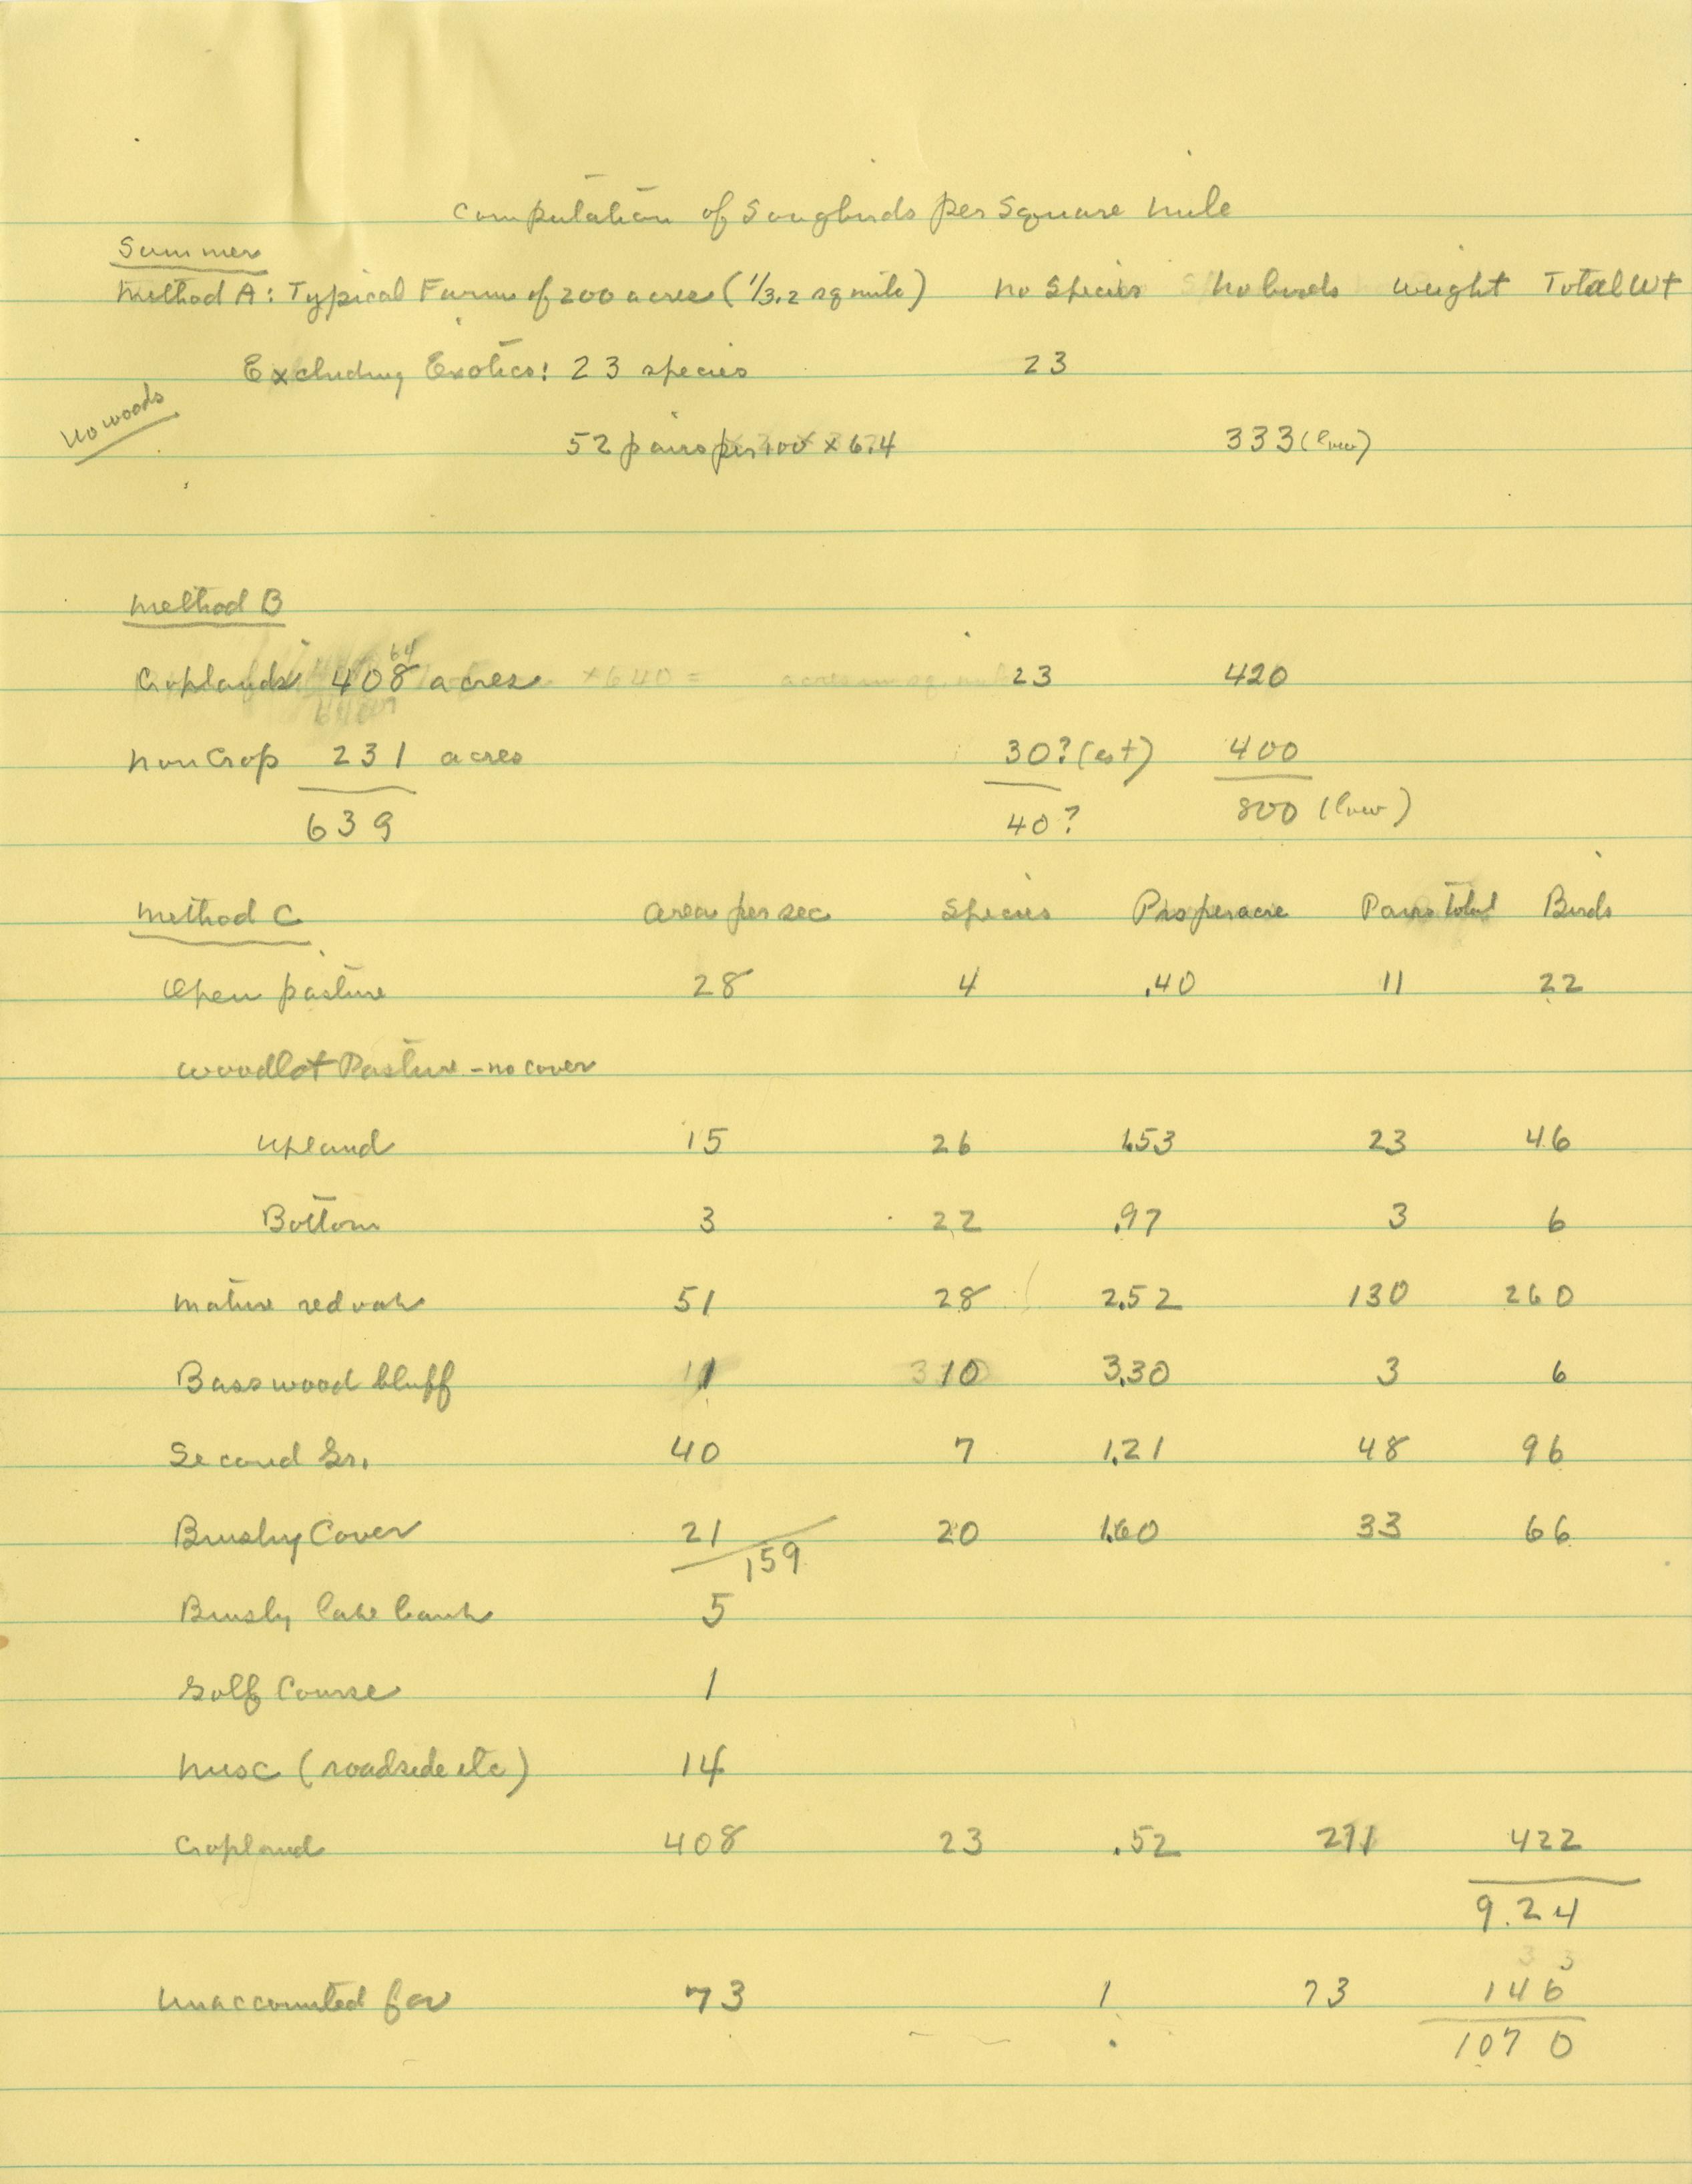 Computation of Songbirds per Square mile
Summer
Method A: Typical Farm of 200 acres (1/3.2 sq mile) no Species no birds weight Total Wt
Excluding Exotics: 23 species 23
No woods
52 pairs per 100 x 6.4 333 (low)
Method B
64
Croplands 408 acres x 640 = acres in sq. mile 23 420
Non Crop 231 acres 30? (est) 400
639 40? 800 (low)
Method C Area per sec Species Prs per acre Pairs total Birds
Open pasture 28 4 .40 11 22
Woodlot Pasture - no cover
Upland 15 26 1.53 23 46
Bottom 3 22 .97 3 6
Mature red oak 51 28 2.52 130 260
Basswood bluff 1 10 3.30 3 6
Second Gr. 40 7 1.21 48 96
Brushy Cover 21 20 1.60 33 66
159
Brushy lake bank 5
Golf Course 1
Misc (roadside etc) 14
Cropland 408 23 .52 211 422
9.24
Unaccounted for 73 1. 73 146
1070